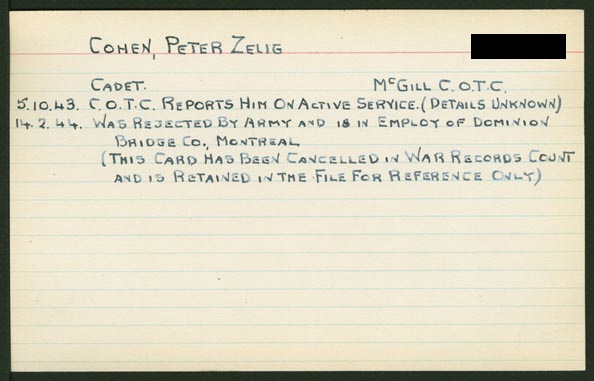 COHEN, PETER ZELIG
CADET. McGILL C.O.T.C.
5.10.43. C.O.T.C. REPORTS HIM ON ACTIVE SERVICE. (DETAILS UNKNOWN)
14.2.44. WAS REJECTED BY ARMY AND IS IN EMPLOY OF DOMINION
BRIDGE CO., MONTREAL
(THIS CARD HAS BEEN CANCELLED IN WAR RECORDS COUNT
AND IS RETAINED IN THE FILE FOR REFERENCE ONLY)